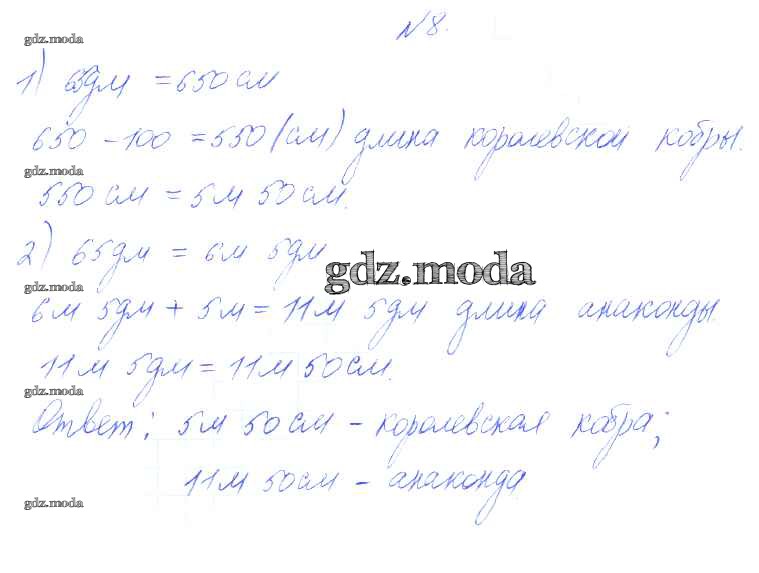 №8.
gdz.moda
1) 65дм = 650 см
650 - 100 = 550 (см) длина королевской кобры.
gdz.moda
550 см = 5м 50 см.
2) 65дм = 6м 5дм
gdz.moda
gdz.moda
6м 5дм + 5м = 11м 5дм длина анаконды.
11м 5дм = 11м 50см.
gdz.moda
Ответ: 5м 50см - королевская кобра;
11м 50см - анаконда
gdz.moda